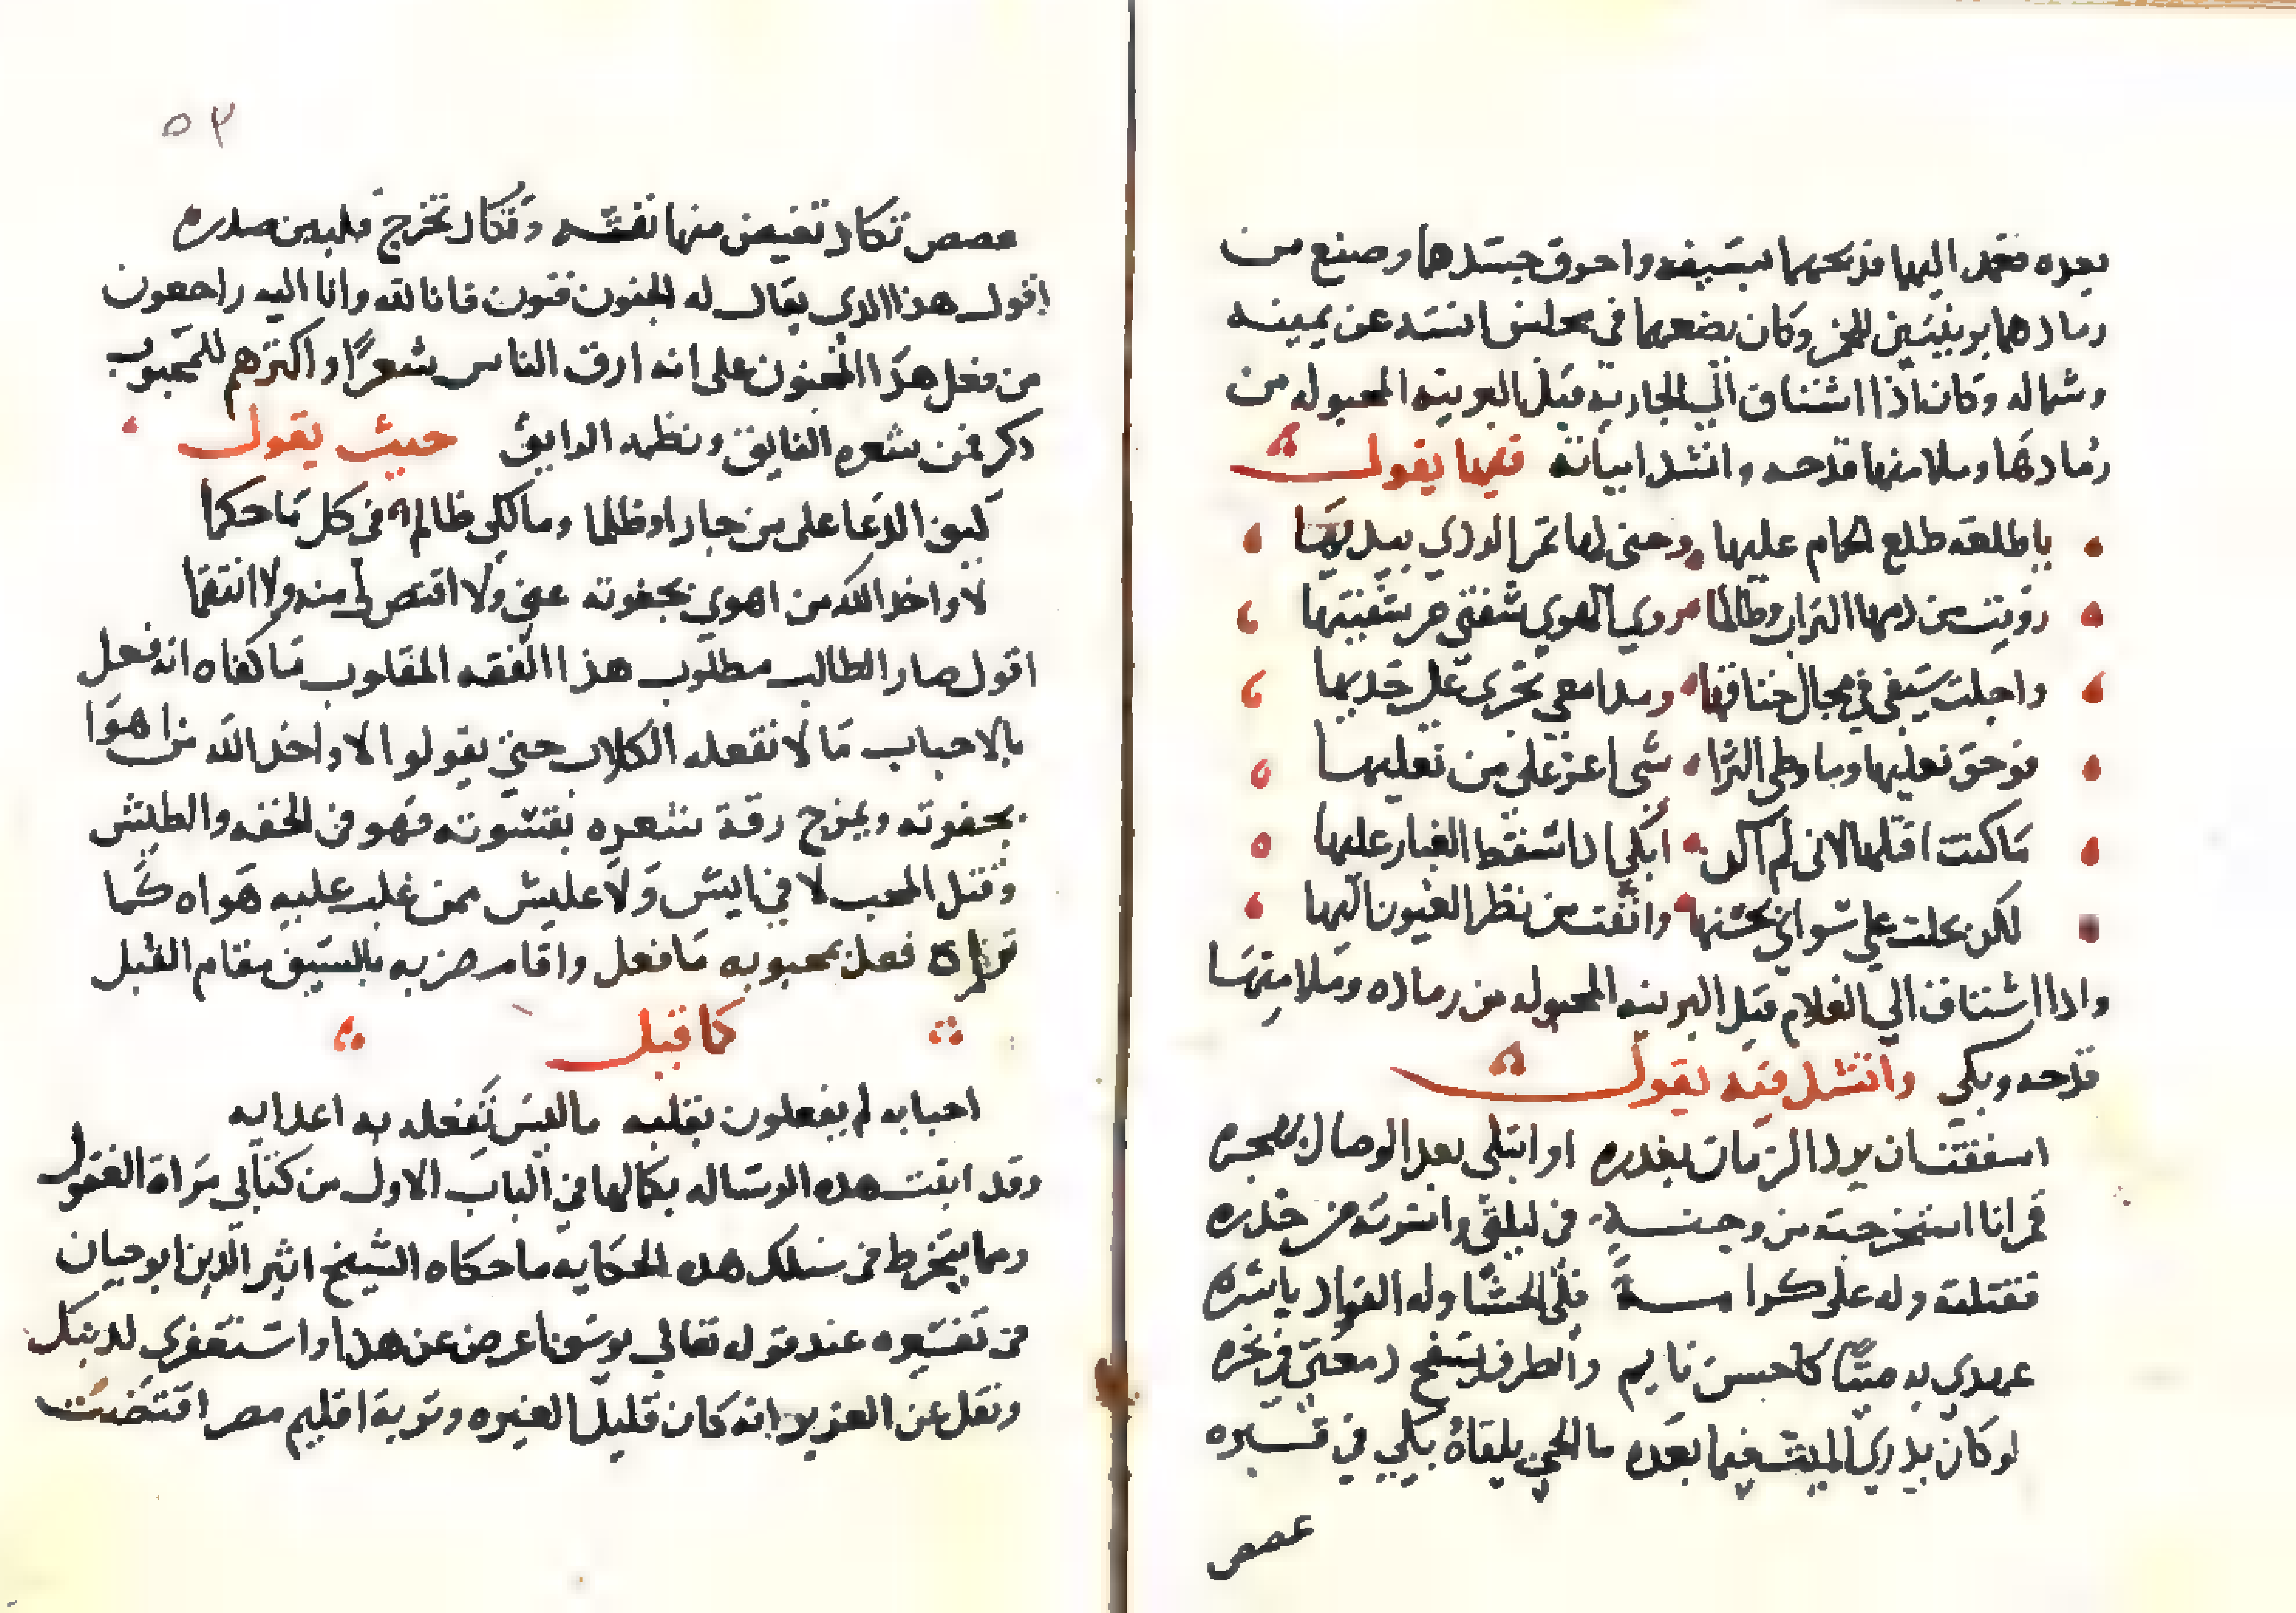 بعده فعمد اليهما فذبحهما بسيفه واحرق جسدهما وصنع من
رمادهما بوبنيتين للخمر وكان يضعهما في مجلس انسه عن يمينه
وشماله وكان اذا اشتاق الي الجارية قبل البرنيه المجبوله من
رمادها وملا منها قدحه وانشد ابياته فيها يقول
ياطلعة طلع الحمام عليها وجنى لها ثمر الردي بيديها
رويت من دمها التراب وطالما روي الهوي شفتي من شفتيها
واجلت سيفي في مجال خناقها ومدامعي تجري على خديها
فوحق نعليها وما وطي الثرا شي اعز علي من نعليها
ما كنت اقتلها لاني لم اكن ابكي اذا سقط الغبار عليها
لكن بخلت علي سواي بحسنها وانفت من نظر العيون اليها
واذا اشتاق الي الغلام قبل البرنيه المجبوله من رماده وملا منها
قدحه وبكي وانشد فيه يقول
اسفقت ان يرد الزمان بغدره او ابتلى بعد الوصال بهجره
قمر انا استخرجته من دجنة في ليلتي واثرته من خدره
فقتلته وله على كرامة فلي الحشا وله الفواد باسره
عهدي به ميتا كاحسن نايم والطرف يسفح دمعتي في نحره
لو كان يدري الميت فيما بعده ما الحي يلقاه بكي في قبره
عصص
٥٣
عصص تكاد تفيض منها نفسه وتكاد تخرج قلبه من صدره
اقول هذا الذي يقال له الجنون فنون فانا لله وانا اليه راجعون
من فعل هذا المجنون على انه ارق الناس شعرا واكثرهم للمحبوب
ذكر فمن شعره الفايق ونظمه الرايق حيث يقول
كيف الدعا على من جار او ظلما ومالكي ظالم في كل ما حكما
لا واخذ الله من اهوي بجفوته عني ولا اقتص لي منه ولا انتقما
اقول صار الطالب مطلوب هذا الفقه المقلوب ما كفاه انه فعل
بالاحباب ما لا تفعله الكلاب حتي يقولوا لا واخذ الله من اهوا
بجفوته ويمزج رقة شعره بقسوته فهو في الخفه والطيش
وقتل المحب لا في ايش ولا عليش ممن غلب عليه هواه كما
تراه فعل بمحبوبه ما فعل واقام ضربه بالسيف مقام القبل
كما قيل
احبابه لم يفعلون بقلبه ما ليس تفعله به اعدايه
وقد اثبت هذه الرساله بكمالها في الباب الاول من كتابي مراة العقول
ومما ينخرط في سلك هذه الحكايه ما حكاه الشيخ اثير الدين ابو حيان
في تفسيره عند قوله تعالي يوسف اعرض عن هذا واستغفري لذنبك
ونقل عن العزيز انه كان قليل الغيره وتربة اقليم مصر اقتضت